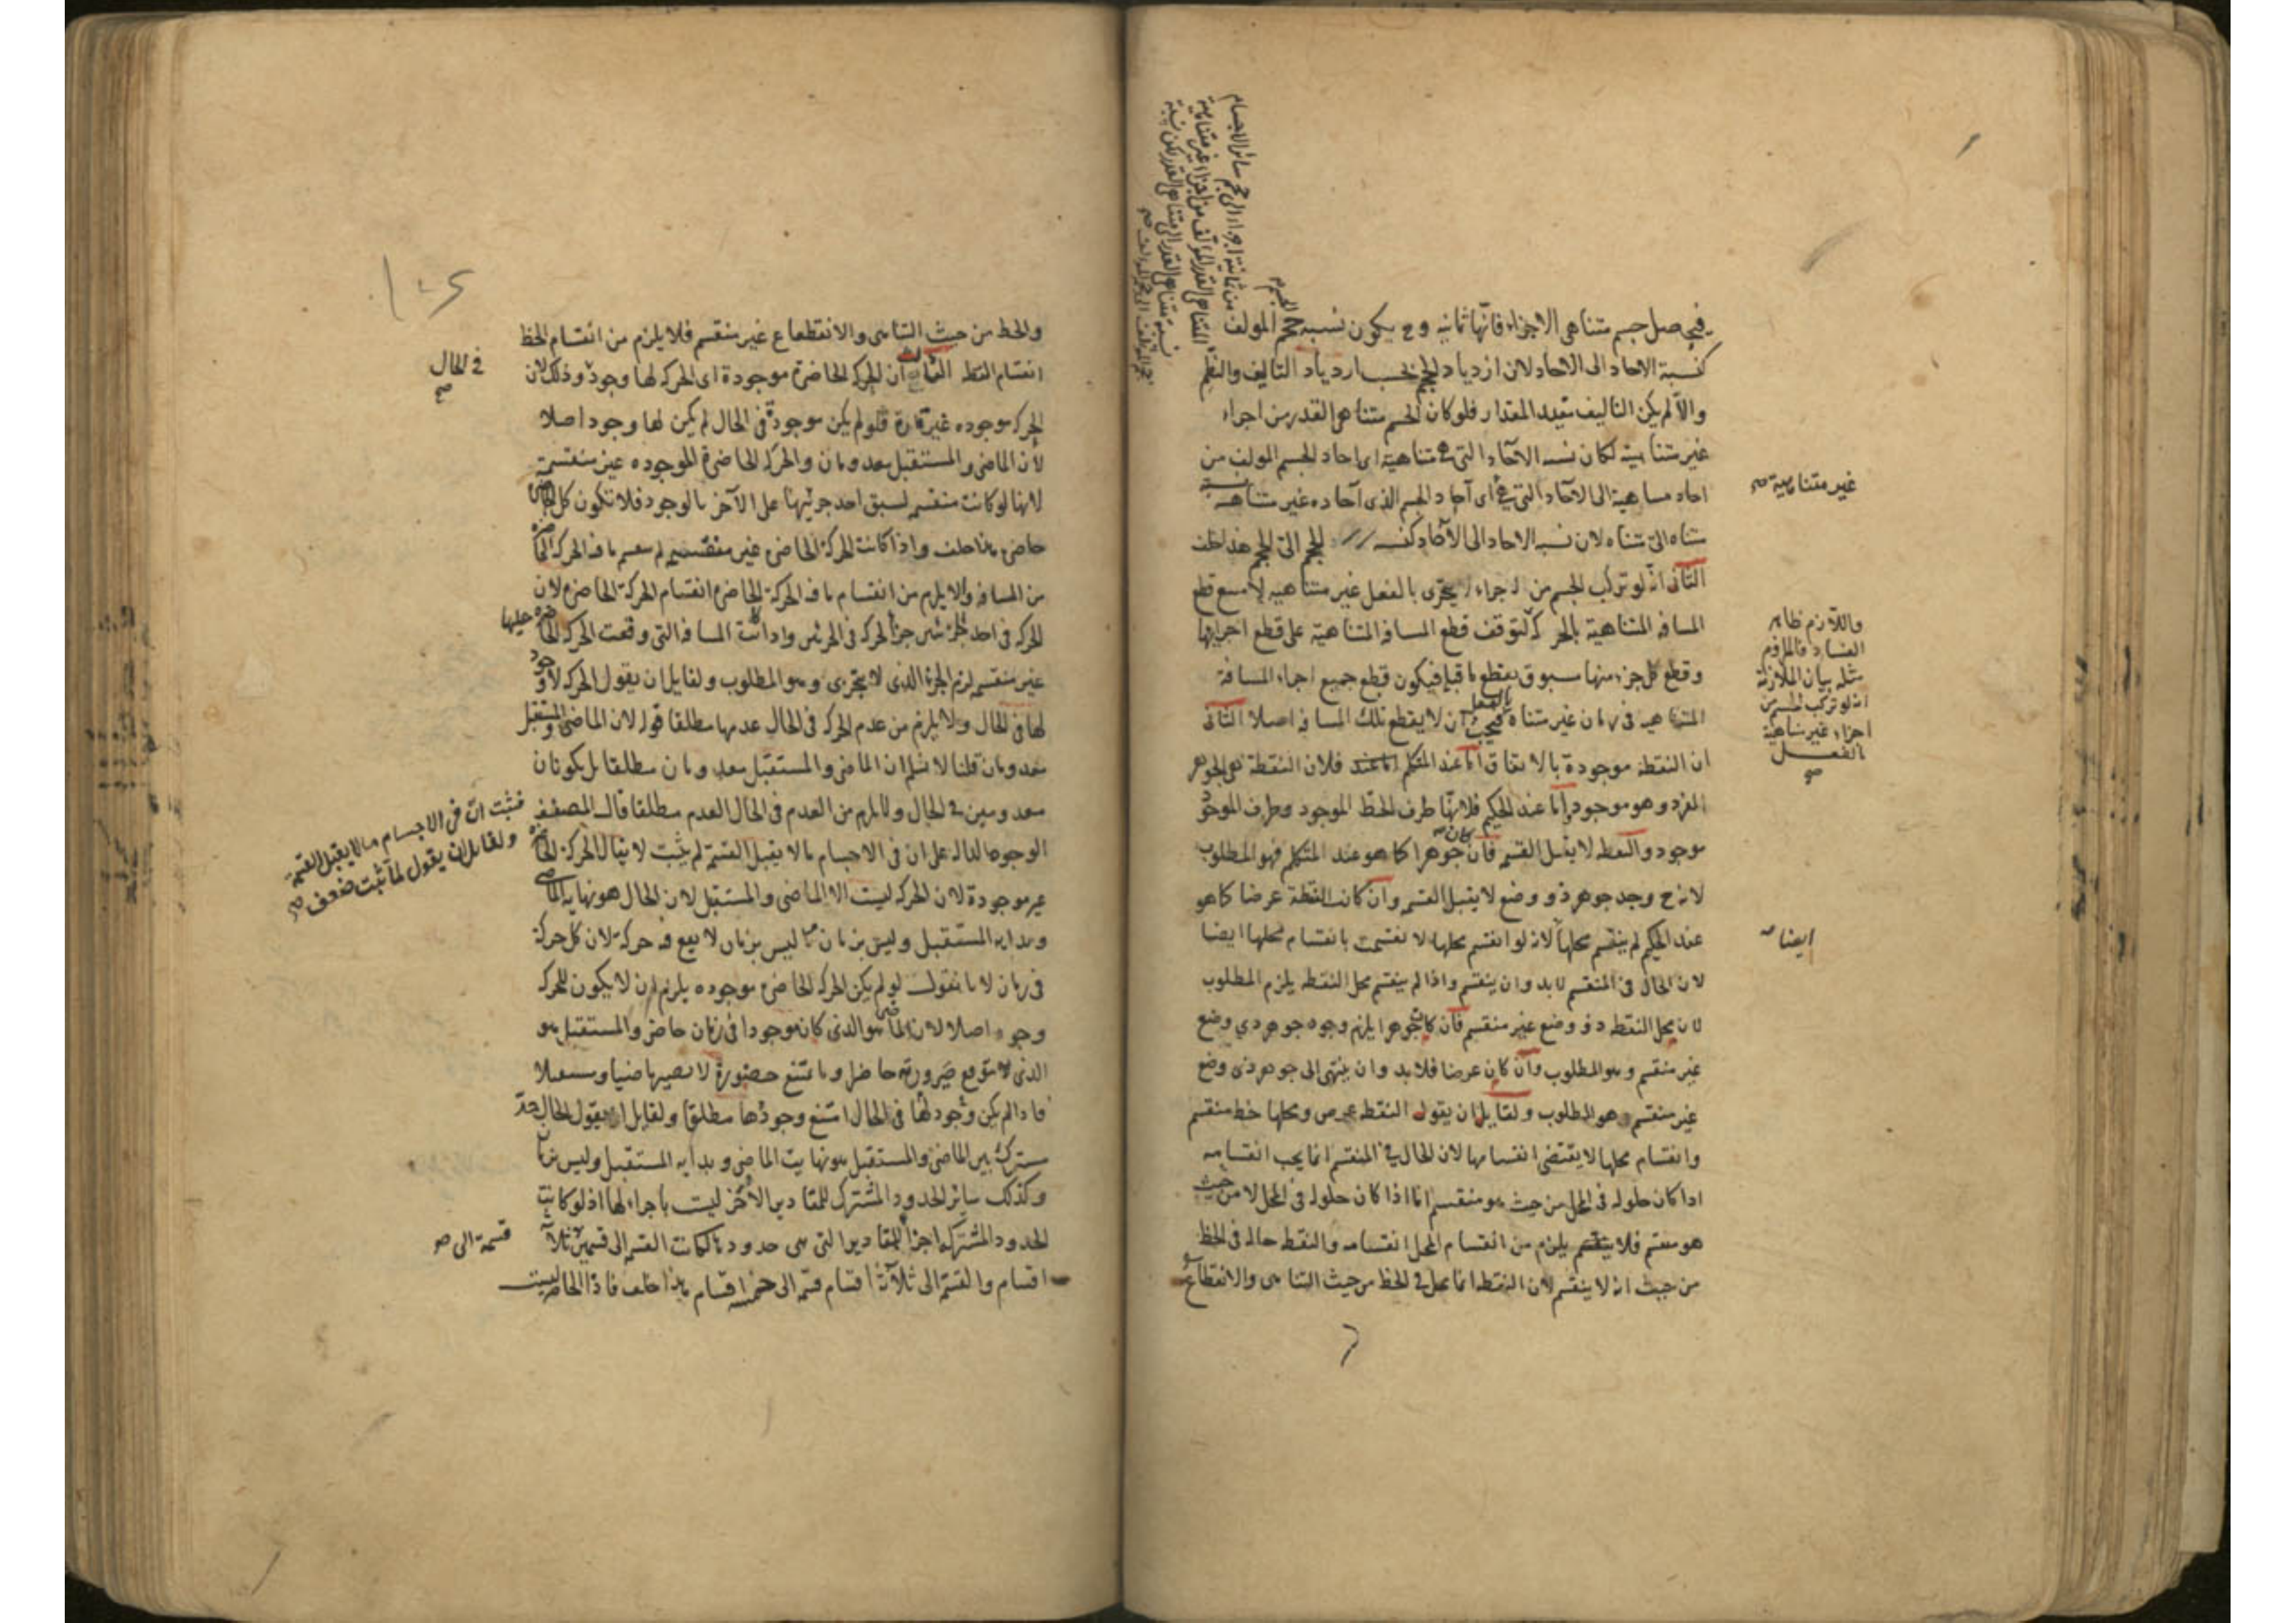 فيحصل جسم متناهى الاجزاء فانها ثمانية وح يكون نسبة حجم المولف
كنسبة الاحاد الى الاحاد لان ازدياد الحجم بحسب ازدياد التاليف والنظم
والا لم يكن التاليف مفيدا لمقدار فلو كان الجسم متناهى القدر من اجزاء
غير متناهية لكان نسبة الآحاد التى هى متناهية اى احاد الجسم المولف من
احاد متناهية الى الآحاد التى هى اى آحاد الجسم الذى آحاده غير متناهية نسبة
غير متناهية صح
متناه الى متناه لان نسبة الاحاد الى الآحاد كنسبة الحجم الى الحجم هذا خلف
الثانى انه لو تركب الجسم من اجزاء لا يتجزى بالفعل غير متناهية لامتنع قطع
المسافة المتناهية بالحركة لتوقف قطع المسافة المتناهية على قطع اجزايها
واللازم ظاهر
الفساد فالملزوم
مثله بيان الملازمة
انه لو تركب الجسم من
اجزاء غير متناهية
بالفعل
صح
وقطع كل جزء منها مسبوق بقطع ما قبله فيكون قطع جميع اجزاء المسافة
المتناهية فى زمان غير متناه فيجب ان لا يقطع تلك المسافة اصلا الثانى
بالفعل
ان النقطة موجودة بالاتفاق اما عند المتكلم فلان النقطة هى الجوهر
الفرد وهو موجود واما عند الحكيم فلانها طرف الخط الموجود وطرف الموجود
موجود والنقطة لا يقبل القسمة فان كان جوهرا كما هو عند المتكلم فهو المطلوب
لانه ح وجد جوهر ذو وضع لا يقبل القسمة وان كانت النقطة عرضا كما هو
عند الحكيم لم ينقسم محلها لانه لو انقسم محلها لانقسمت بانقسام محلها ايضا
ايضا
لان الحال فى المنقسم لا بد وان ينقسم واذا لم ينقسم محل النقطة يلزم المطلوب
لان محل النقطة ذو وضع غير منقسم فان كان جوهرا يلزم وجود جوهر ذى وضع
غير منقسم وهو المطلوب وان كان عرضا فلا بد وان ينتهى الى جوهر ذى وضع
غير منقسم وهو المطلوب ولقايل ان يقول النقطة عرض ومحلها خط منقسم
وانقسام محلها لا يقتضى انقسامها لان الحال فى المنقسم انما يجب انقسامه
اذا كان حلوله فى المحل من حيث هو منقسم اما اذا كان حلوله فى المحل لا من حيث
هو منقسم فلا يلزم من انقسام المحل انقسامه والنقطة حالة فى الخط
من حيث انه لا ينقسم لان النقطة انما تحل فى الخط من حيث التناهى والانقطاع
والخط من حيث التناهى والانقطاع غير منقسم فلا يلزم من انقسام الخط
انقسام النقطة الثالث ان الحركة الحاضرة موجودة اى الحركة لها وجود وذلك لان
فى الحال
صح
الحركة موجودة غير قارة فلو لم يكن موجودة فى الحال لم يكن لها وجود اصلا
لان الماضى والمستقبل معدومان والحركة الحاضرة الموجودة غير منقسمة
لانها لو كانت منقسمة لسبق احد جزئيها على الآخر بالوجود فلا تكون كل الحاضرة
حاضرة هذا خلف واذا كانت الحركة الحاضرة غير منقسمة لم ينقسم ما فيه الحركة الحاضرة
من المسافة والا يلزم من انقسام ما فيه الحركة الحاضرة انقسام الحركة الحاضرة لان
الحركة فى احد الجزئين جزء الحركة فى الجزئين واذا كانت المسافة التى وقعت الحركة الحاضرة عليها
غير منقسمة لزم الجزء الذى لا يتجزى وهو المطلوب ولقايل ان يقول الحركة لا وجود
لها فى الحال ولا يلزم من عدم الحركة فى الحال عدمها مطلقا قوله لان الماضى والمستقبل
معدومان قلنا لا نسلم ان الماضى والمستقبل معدومان مطلقا بل يكونان
معدومين فى الحال ولا يلزم من العدم فى الحال العدم مطلقا قال المصنف
الوجوه الدالة على ان فى الاجسام ما لا يقبل القسمة لم يثبت لا يقال الحركة الحاضرة
فثبت ان فى الاجسام ما لا يقبل القسمة
ولقايل ان يقول لما ثبت ضعف صح
غير موجودة لان الحركة ليست الا الماضى والمستقبل لان الحال هو نهاية الماضى
وبداية المستقبل وليس بزمان وما ليس بزمان لا يقع فيه حركة لان كل حركة
فى زمان لانا نقول لو لم يكن الحركة الحاضرة موجودة يلزم ان لا يكون للحركة
وجود اصلا لان الماضى هو الذى كان موجودا فى زمان حاضر والمستقبل هو
الذى يتوقع صيرورته حاضرا وما يمتنع حضوره لا يصير ماضيا ومستقبلا
فاذا لم يكن وجود لها فى الحال امتنع وجودها مطلقا ولقايل ان يقول الحال حد
مشترك بين الماضى والمستقبل هو نهاية الماضى وبداية المستقبل وليس بزمان
وكذلك سائر الحدود المشتركة للمقادير الاخر ليست باجزاء لها اذ لو كانت
الحدود المشتركة اجزاء للمقادير التى هى حدودها لكانت القسمة الى قسمين ثلاثة
قسمة الى صح
اقسام والقسمة الى ثلاثة اقسام قسمة الى خمسة اقسام هذا خلف فاذا الحاضر ليست